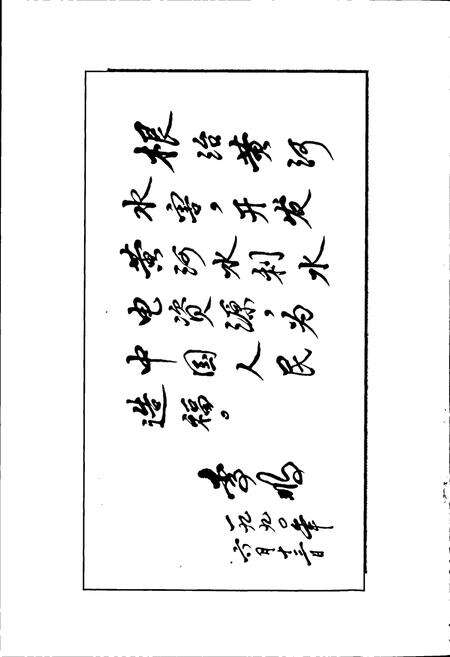 根治黄河
水害，开发
黄河水利水
电资源，为
中国人民
造福。
李鹏
一九九〇年
六月十三日